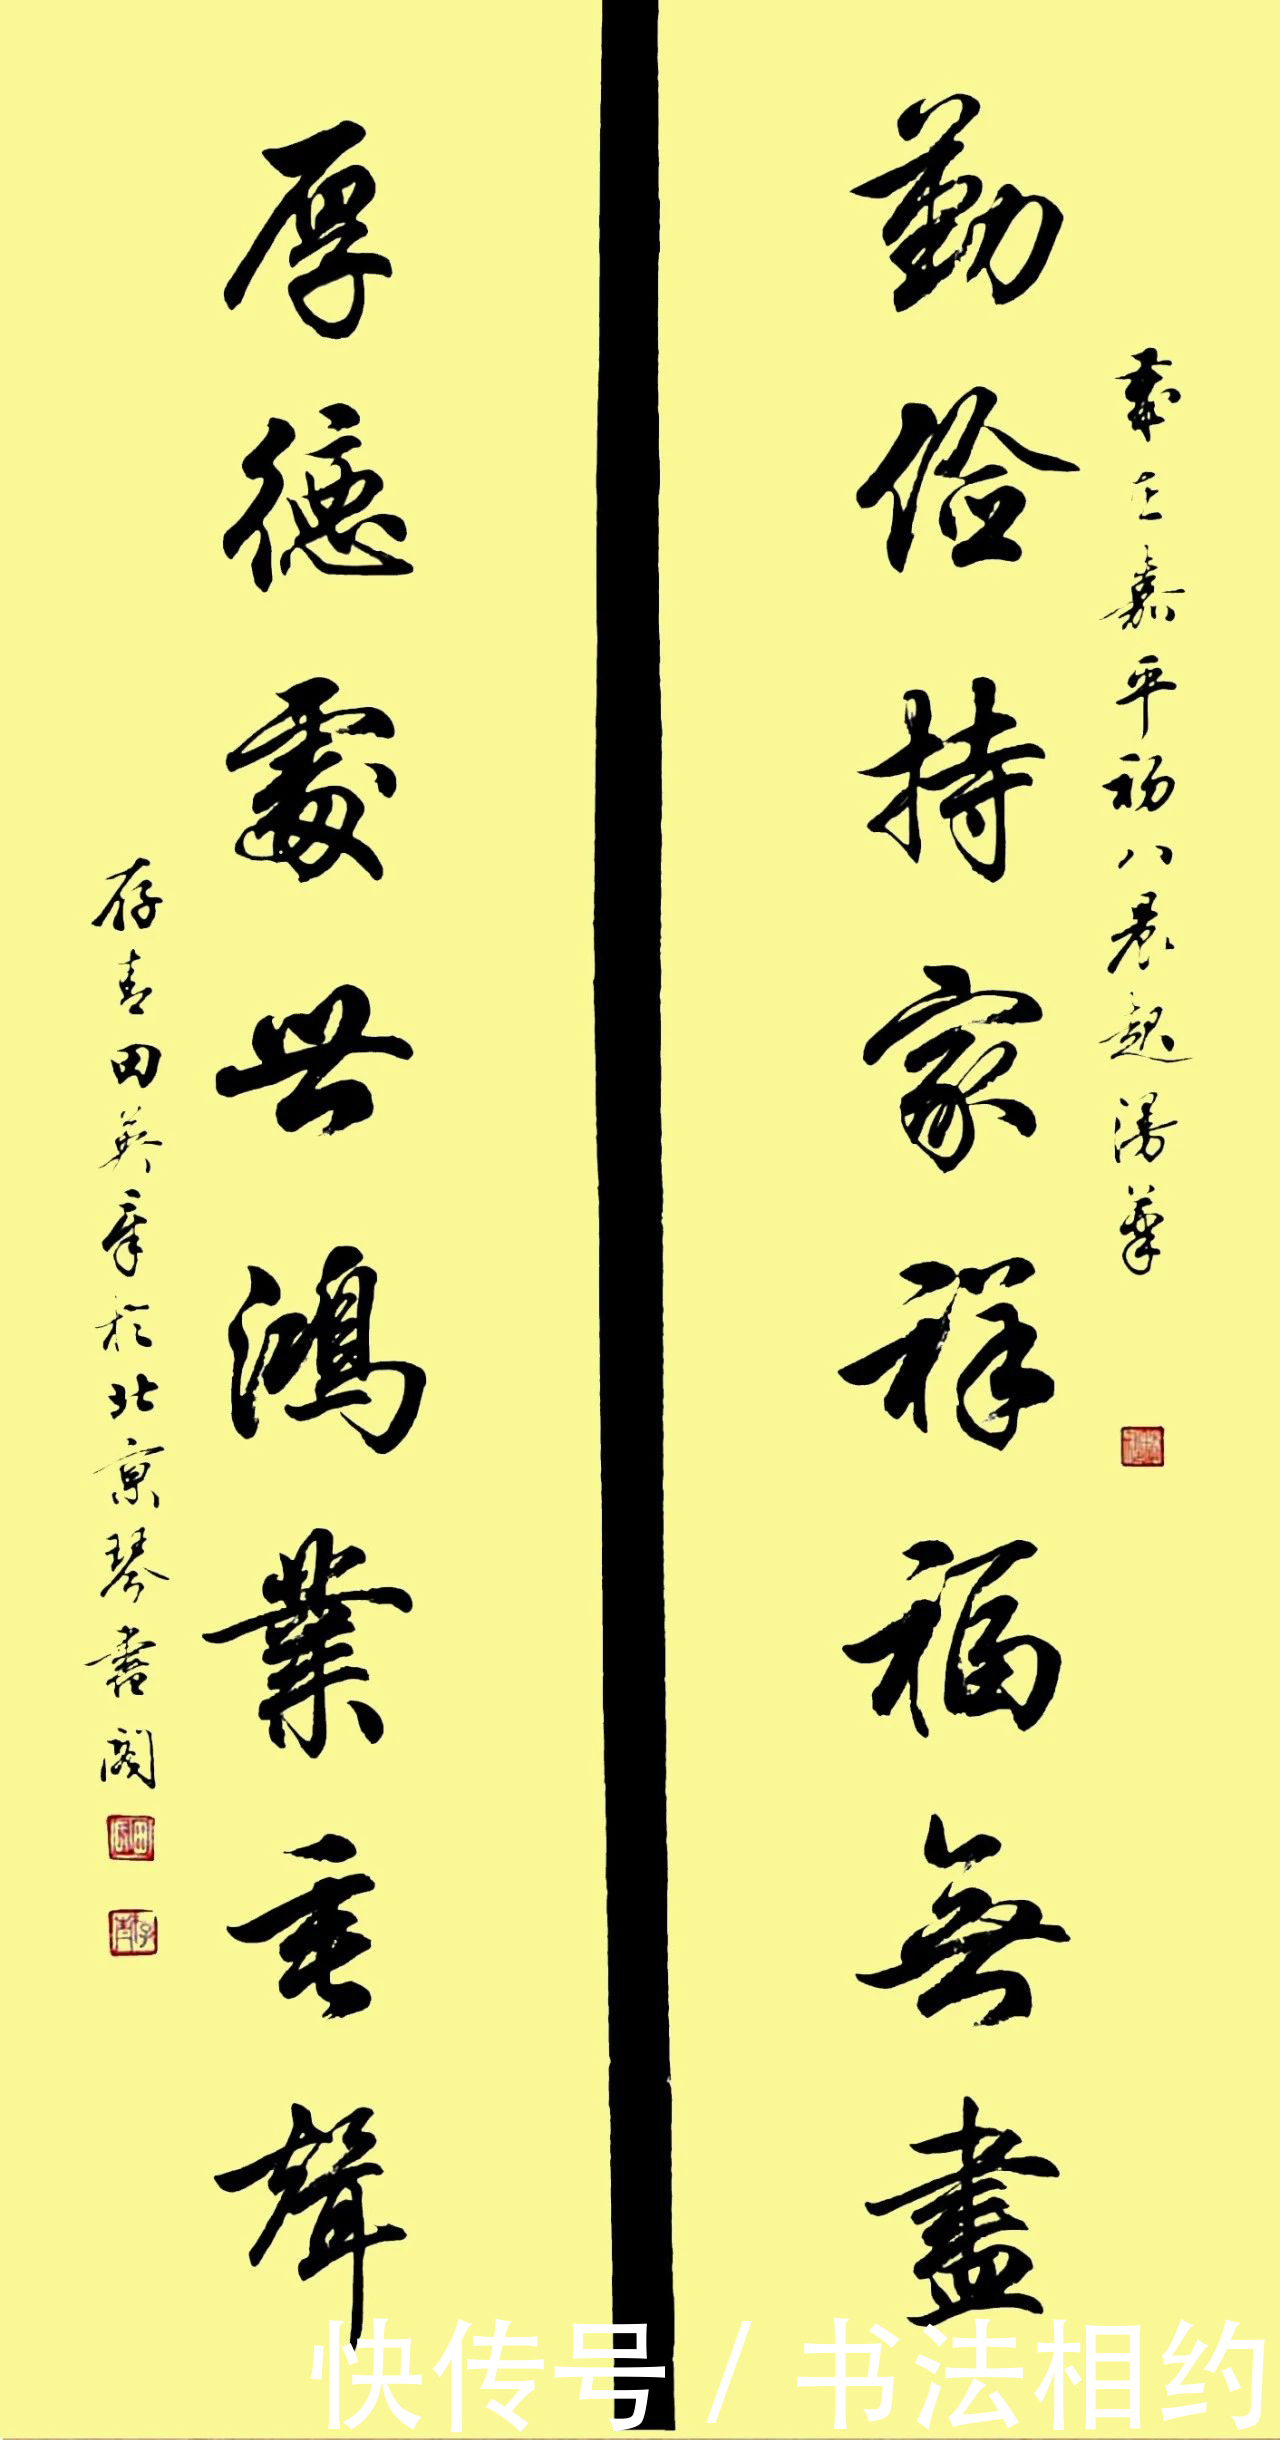 歲在嘉平初八晨起湯華
勤儉持家祥福無盡
厚德處世鴻業垂聲
存青田英章於北京琴書閣
快传号 / 书法相约